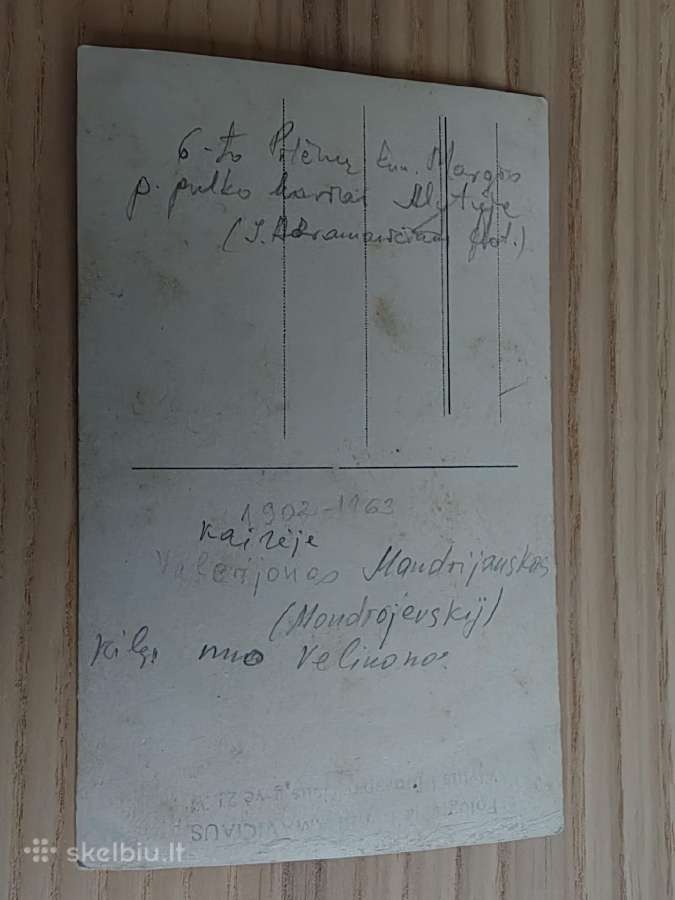 6-to Pilėnų kun. Margio
p. pulko kariai Alytuje
(J. Abramavičiaus fot.)
1902-1963
kairėje
Valerijonas Mandrijauskas
(Mondrojevskij)
kilęs nuo Veliuonos
skelbiu.lt